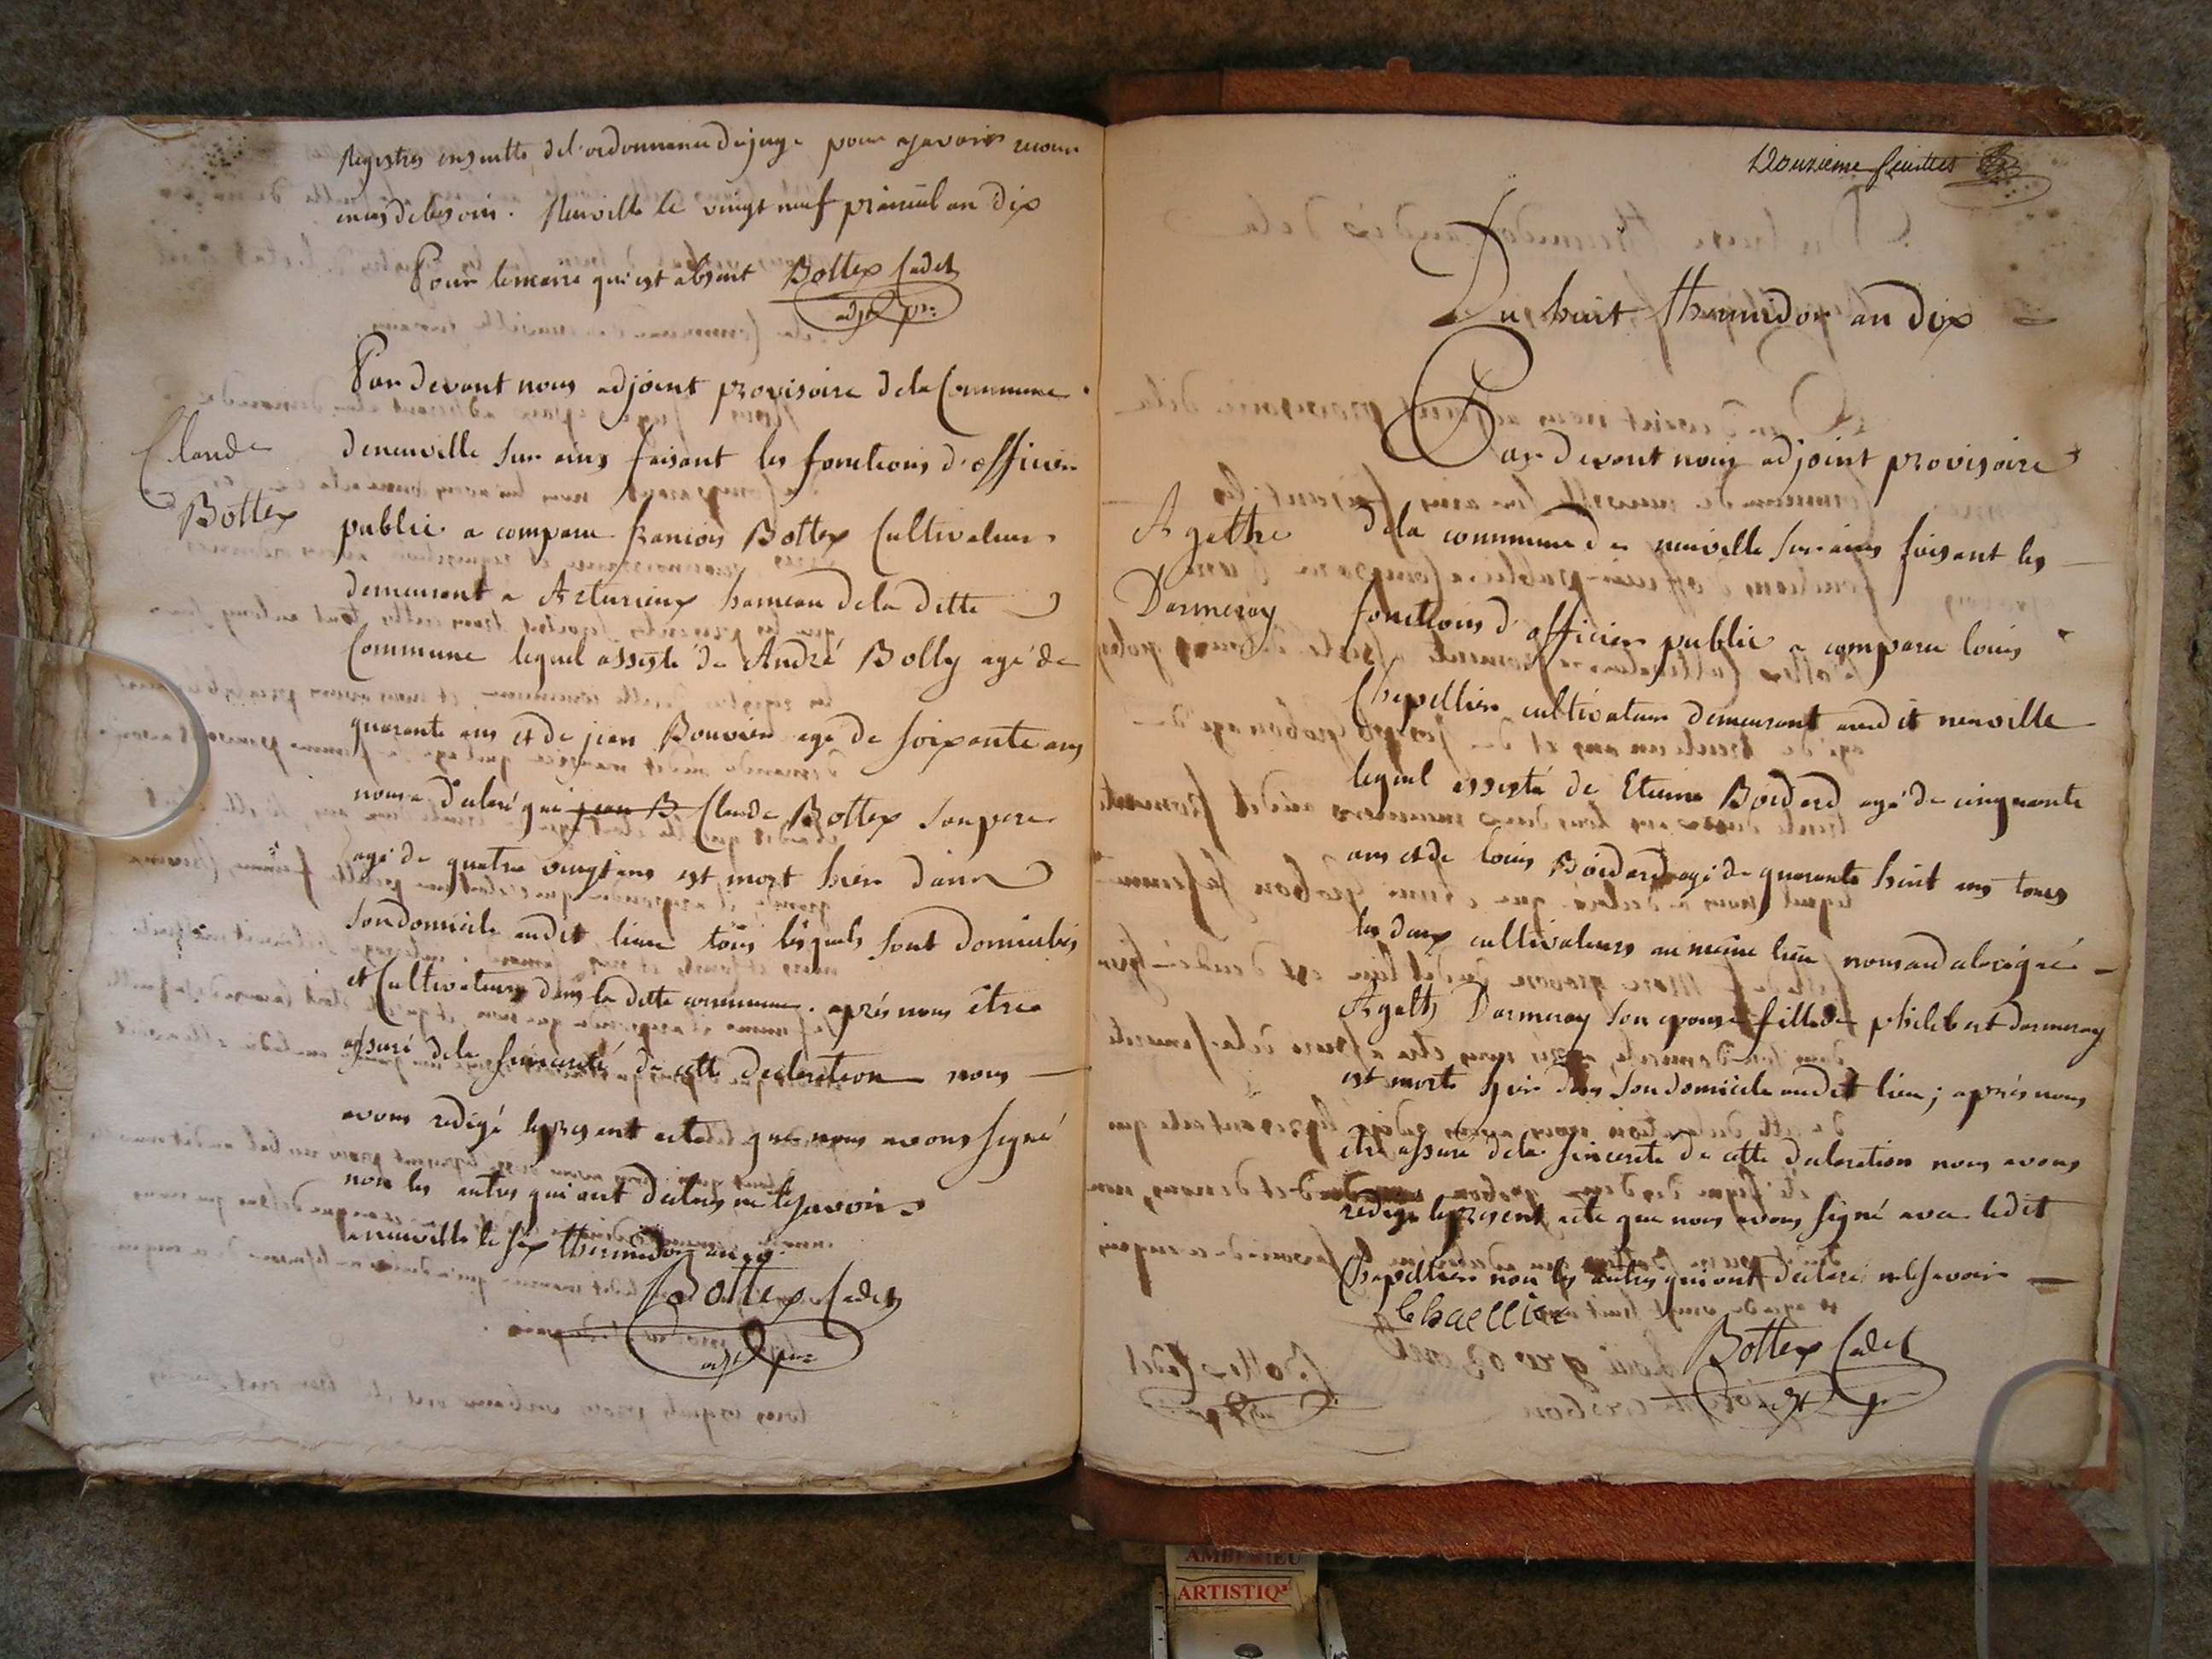 Registres ensuitte de l'ordonnance du juge pour y avoir recour
en cas de besoin. Neuville le vingt neuf prairial an dix
Pour le maire qui est absent Bottex Cadet
adjt pr:
Par devant nous adjoint provisoire de la Commune
Claude
Bottex
de neuville sur ains faisant les fonctions d'officier
public a comparu francois Bottex Cultivateur
demeurant a Arturieux hameau de la ditte
Commune lequel assisté de André Bolly agé de
quarante ans et de jean Bouvier agé de soixante ans
nous a declaré que jean B Claude Bottex son pere
agé de quatre vingt ans est mort hier dans
son domicile audit lieu tous lesquels sont domiciliés
et Cultivateurs dans la ditte commune. après nous être
assuré de la sincerité de cette declaration nous
avons redigé le present acte que nous avons signé
non les autres qui ont declaré ne le savoir
a neuville le six thermidor an 10.
Bottex Cadet
adjt pr:
Douzieme feuillet
Du huit thermidor an dix
Par devant nous adjoint provisoire
Agathe
Darmeray
de la commune de neuville sur ains faisant les
fonctions d'officier public a comparu louis
Chapellier cultivateur demeurant audit neuville
lequel assisté de Etienne Boidard agé de cinquante
ans et de louis Boidard agé de quarante huit ans tous
les deux cultivateurs au meme lieu nous a declaré que
Agath Darmeray son epouse fille de philibert darmeray
est morte hier dans son domicile audit lieu; après nous
être assuré de la sincerité de cette declaration nous avons
redigé le present acte que nous avons signé avec ledit
Chapellier non les autres qui ont declaré ne le savoir
Chaellier
Bottex Cadet
adjt p
AMBERIEU
ARTISTIQ